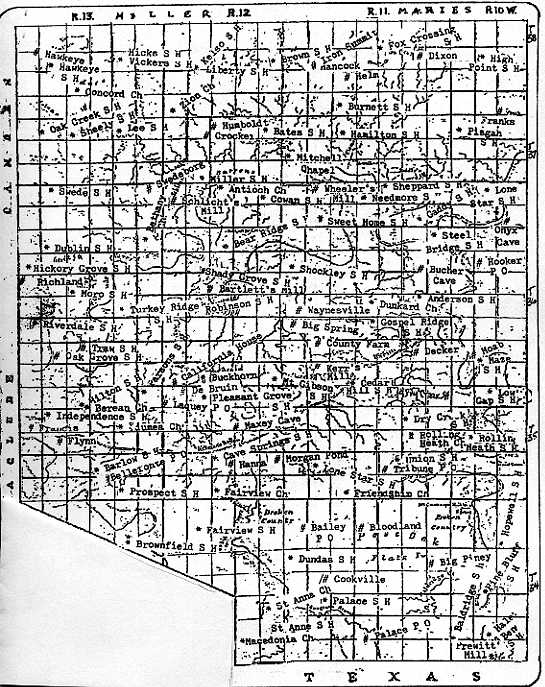 R.13. MILLER R.12 R.11. MARIES R10W.
T 38
CAMDEN
# Hawkeye
* Hawkeye S H
Hicks S H
* Vickers S H
* Kelso S H
Liberty S H
* Brown S H
# Iron Summit
# Hancock
# Helm
* Fox Crossing S H
# Dixon
* High Point S H
* Concord Ch
* Zion Ch
* Burnett S H
# Franks
* Oak Creek S H
* Sheely S H
* Lee S H
# Humboldt
# Crocker
* Bates S H
* Hamilton S H
* Pisgah S H
T 37
# Swedeborg
* Mitchell Chapel
* Miller S H
* Swede S H
* Bethany Ch
Schlicht's Mill
* Antioch Ch
* Cowan S H
# Wheeler's Mill
* Sheppard S H
* Needmore S H
* Lone Star S H
* Bear Ridge S H
* Sweet Home S H
* Steel Bridge S H
# Onyx Cave
* Dublin S H
* Hickory Grove S H
# Richland
* Shade Grove S H
# Bartlett's Mill
* Shockley S H
# Bucher Cave
# Hooker P O
* Morp S H
* Anderson S H
T 36
# Riverdale S H
* Turkey Ridge
* Robinson S H
# Waynesville
* Dunkard Ch
# Big Spring
* Gospel Ridge S H
* Oak Grove S H
* Parsons S H
# California House
# County Farm
# Decker
# Moab
* Maze S H
# Buckhorn
# De Bruin
* Pleasant Grove S H
* Mt. Gibson S H
# Kerr's Mill
* Cedar Hill S H
* Low Gap S H
LACLEDE
* Hilton S H
* Berean Ch
# Laquey P O
* Independence S H
# Francis
* Idumea Ch
# Maxey Cave
* Dry Crk S H
T 35
# Flynn
* Cave Springs S H
* Rolling Heath Ch
* Rolling Heath S H
* Barlow S H
# Bellefonte P O
# Hanna
# Morgan Pond
* Lone Star S H
* Union S H
# Tribune P O
* Prospect S H
* Fairview Ch
* Friendship Ch
* Hopewell S H
Broken Country
Broken Country
* Fairview S H
# Bailey P O
# Bloodland
Post Oak
* Brownfield S H
* Dundas S H
Flats
# Big Piney
# Cookville
* Baldridge S H
* King Bluff S H
T 34
* St Anna Ch
* Palace S H
* St Anne S H
# Palace P O
* Macedonia Ch
# Prewitt Mill
* Hale Ben S H
TEXAS